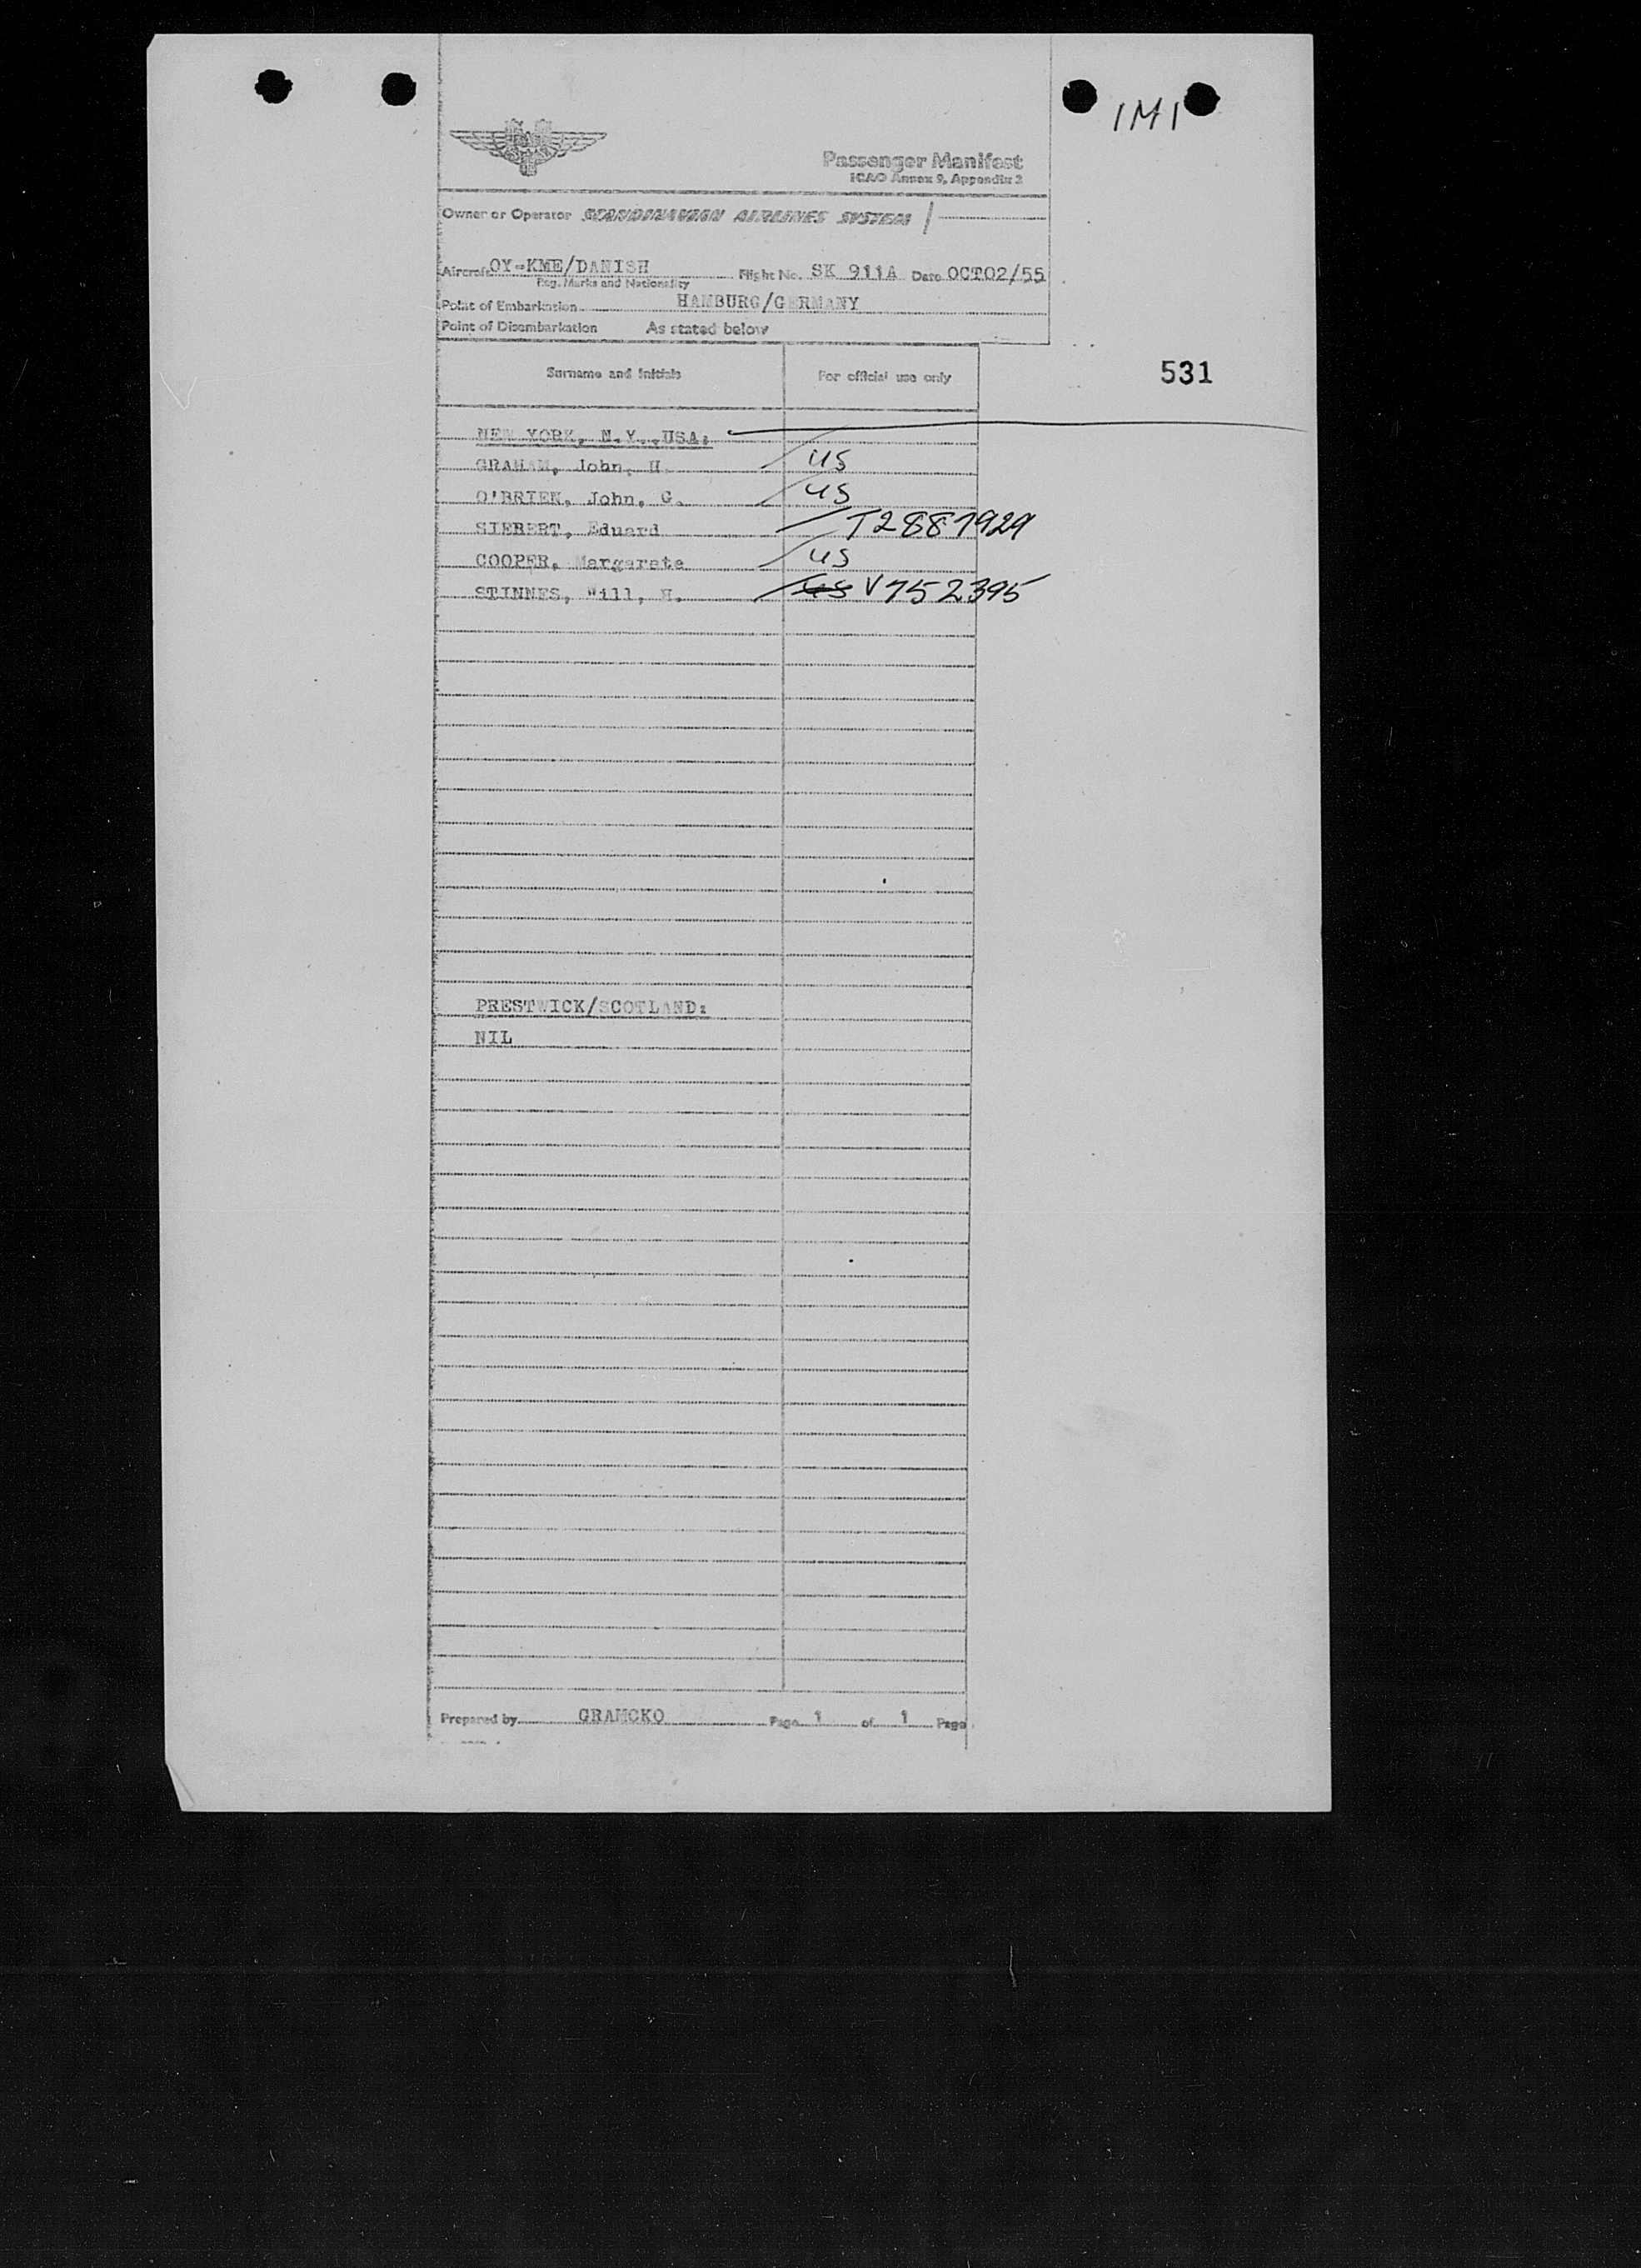 1M1
SAS
Passenger Manifest
ICAO Annex 9, Appendix 2
Owner or Operator SCANDINAVIAN AIRLINES SYSTEM
Aircraft OY-KME/DANISH Flight No. SK 911A Date OCT02/55
Reg. Marks and Nationality
Point of Embarkation HAMBURG/GERMANY
Point of Disembarkation As stated below
Surname and initials For official use only
531
NEW YORK, N.Y.,USA:
GRAHAM, John, H. US
O'BRIEN, John, G. US
SIEBERT, Eduard T2887929
COOPER, Margarete US
STINNES, Will, H. US V752395
PRESTWICK/SCOTLAND:
NIL
Prepared by GRAMCKO Page 1 of 1 Page